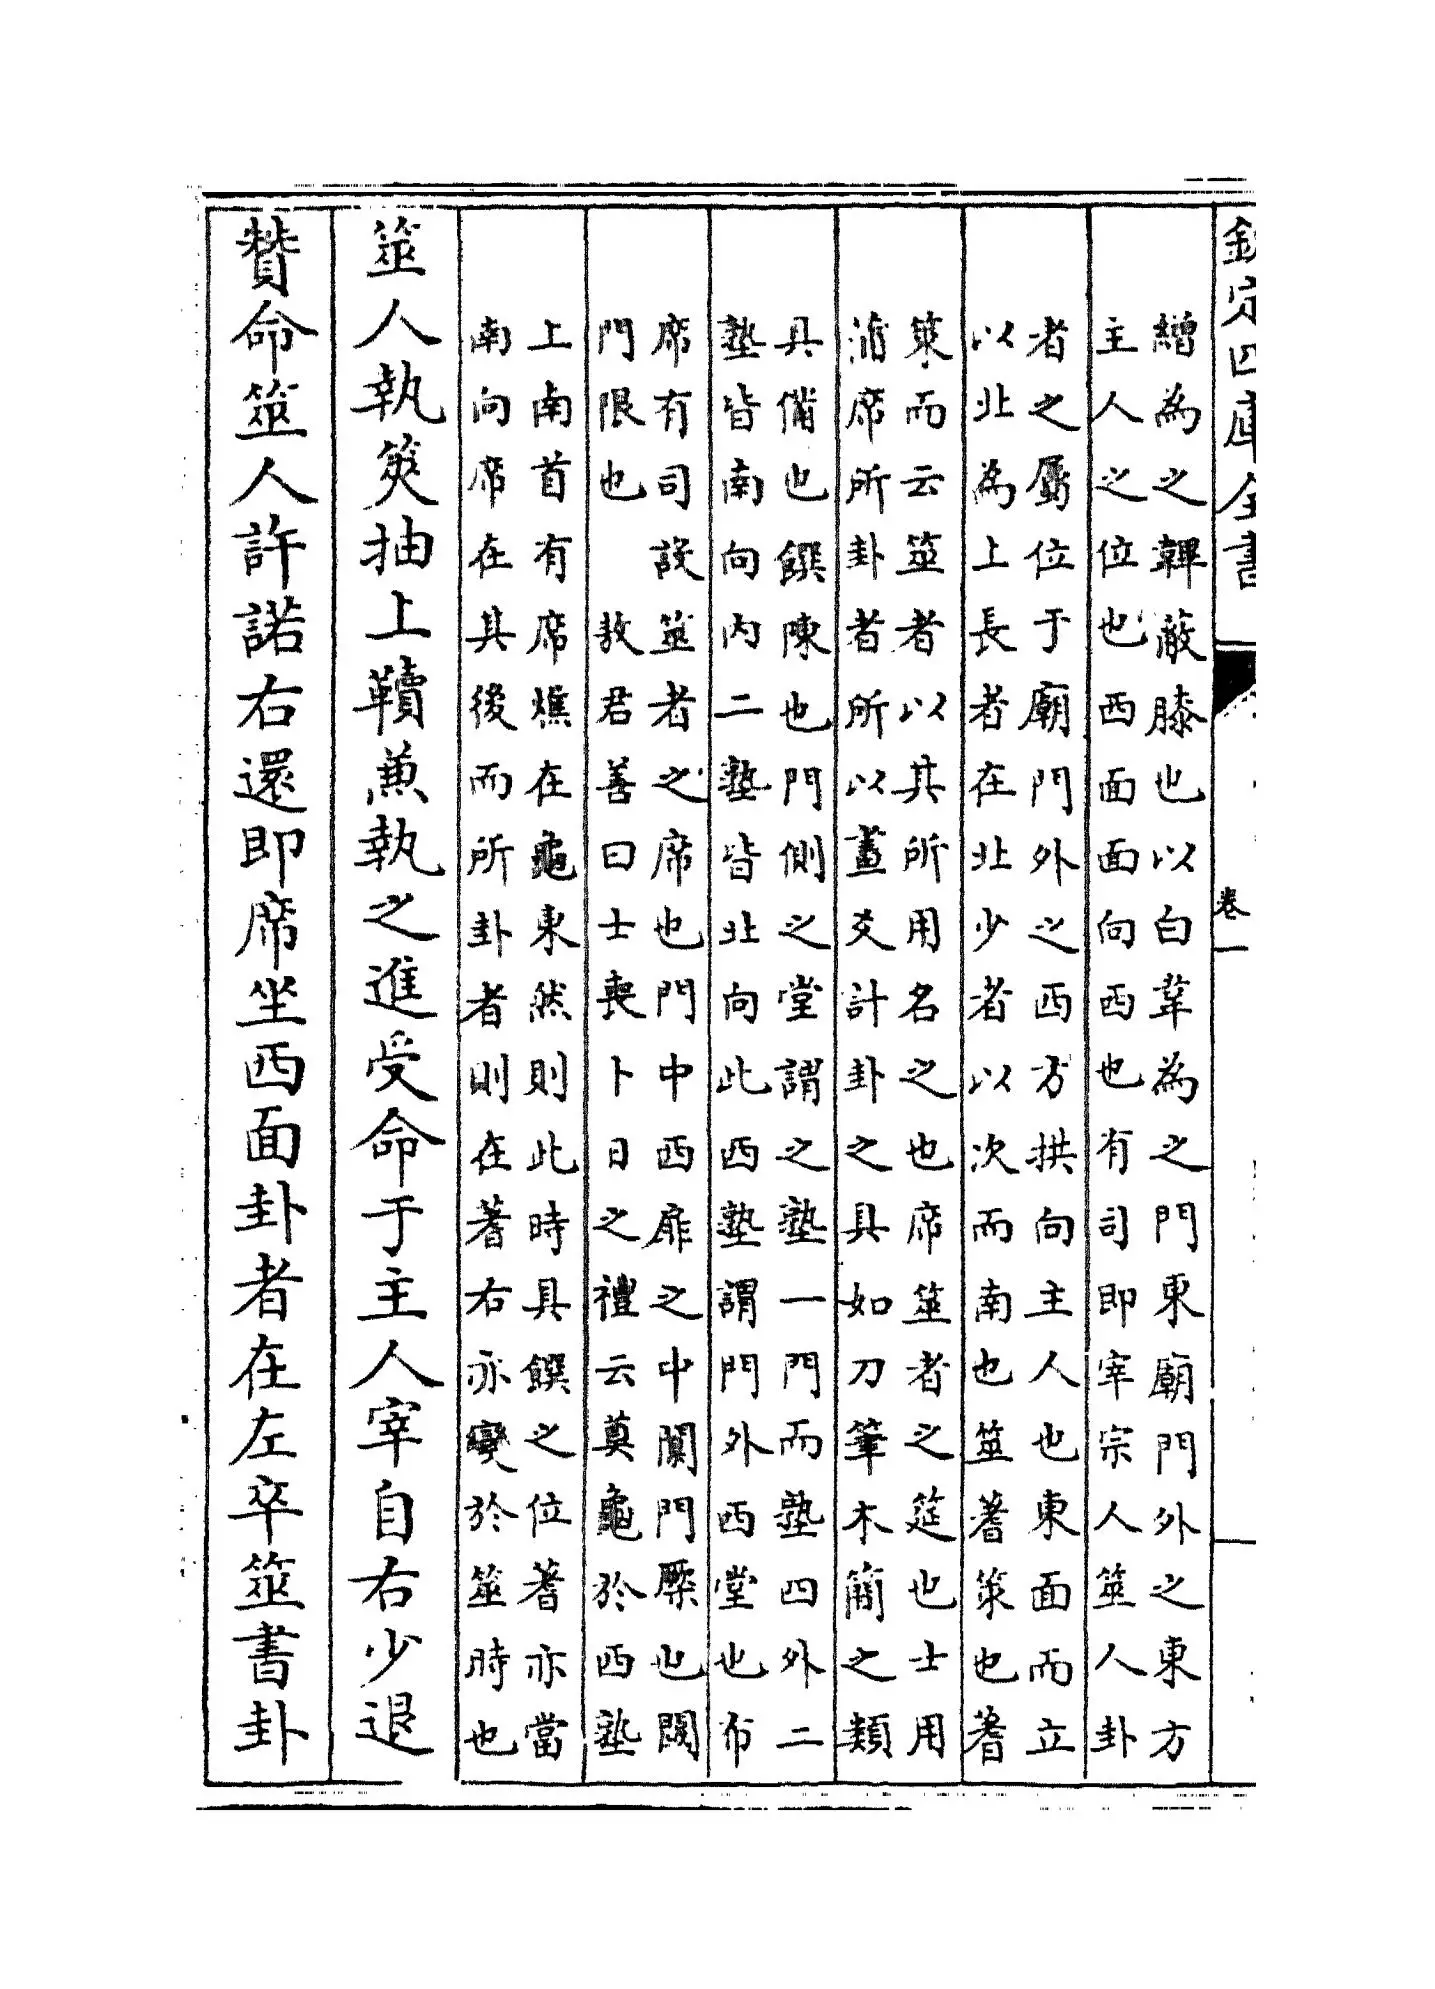 欽定四庫全書
卷一
繒為之韠蔽膝也以白韋為之門東廟門外之東方
主人之位也西面面向西也有司即宰宗人筮人卦
者之屬位于廟門外之西方拱向主人也東面而立
以北為上長者在北少者以次而南也筮蓍策也蓍
策而云筮者以其所用名之也席筮者之筵也士用
蒲席所卦者所以畫爻計卦之具如刀筆木簡之類
具備也饌陳也門側之堂謂之塾一門而塾四外二
塾皆南向內二塾皆北向此西塾謂門外西堂也布
席有司設筮者之席也門中西扉之中闑門橜也閾
門限也　敖君善曰士喪卜日之禮云奠龜於西塾
上南首有席燋在龜東然則此時具饌之位蓍亦當
南向席在其後而所卦者則在蓍右亦變於筮時也
筮人執筴抽上韇兼執之進受命于主人宰自右少退
贊命筮人許諾右還即席坐西面卦者在左卒筮書卦